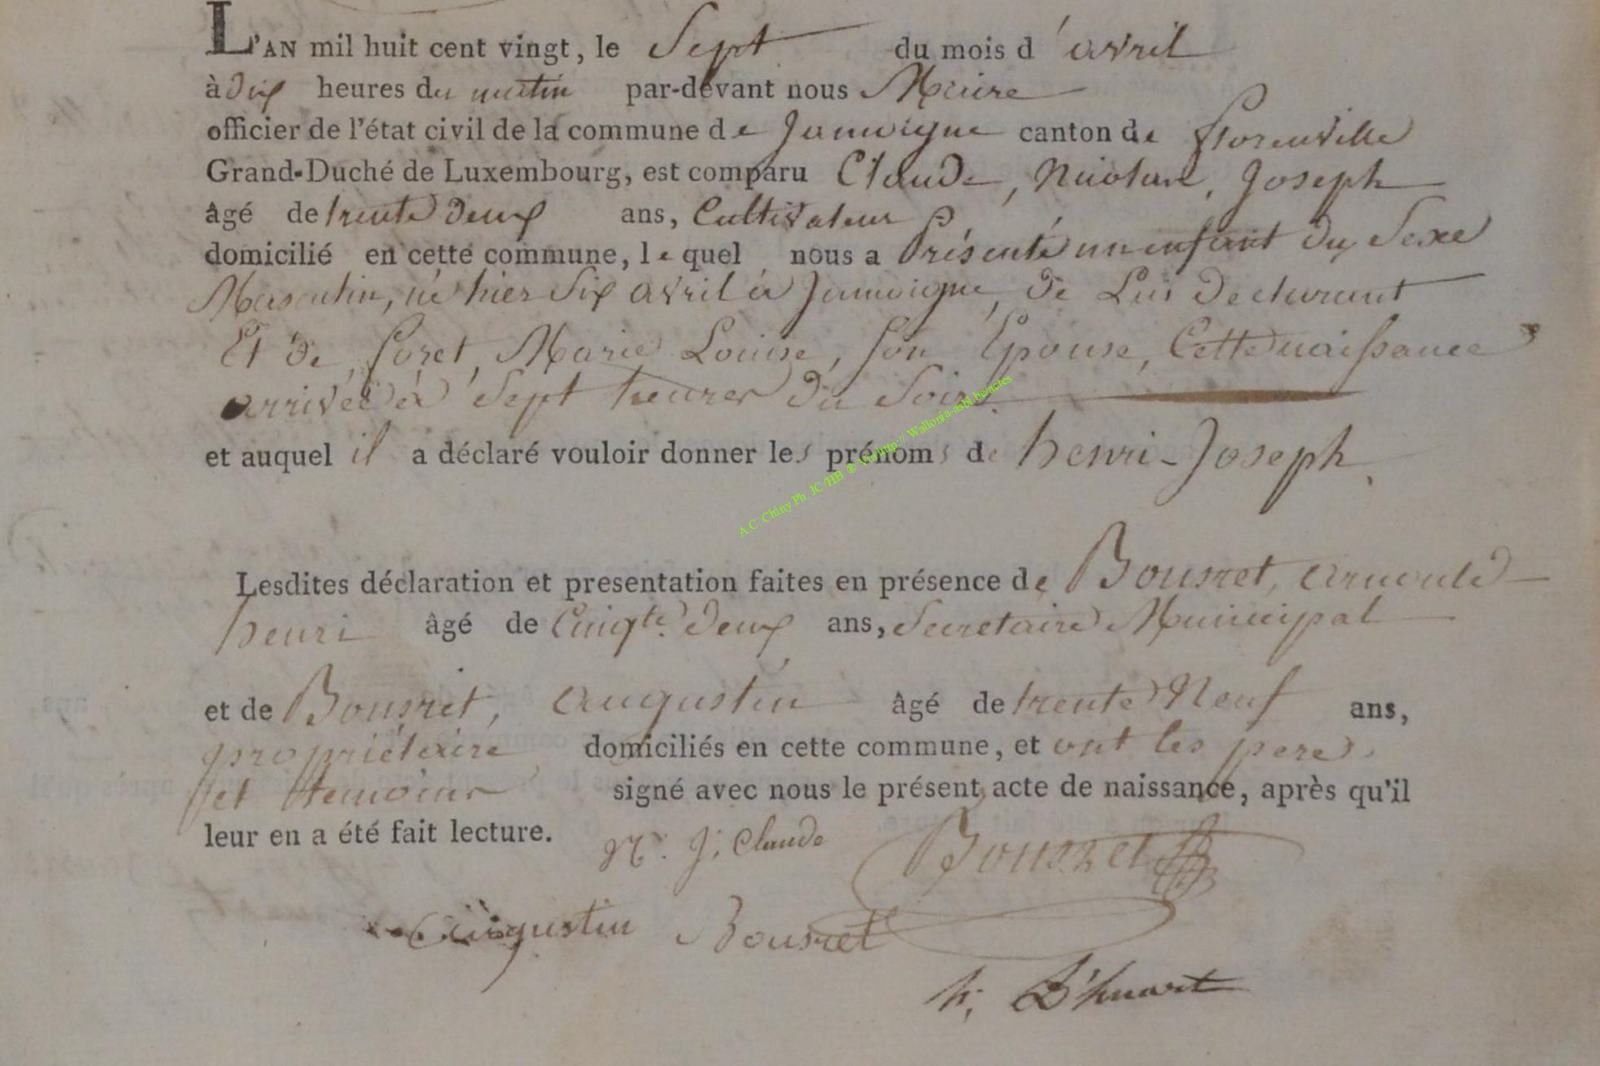 L'AN mil huit cent vingt, le Sept du mois d'avril
à dix heures du matin par-devant nous Maire
officier de l'état civil de la commune de Jamoigne canton de florenville
Grand-Duché de Luxembourg, est comparu Claude, Nicolas, Joseph
âgé de trente deux ans, Cultivateur
domicilié en cette commune, lequel nous a Présenté un enfant du Sexe
Masculin, né hier Six avril à Jamoigne, de Lui declarant
Et de foret, Marie Louise, son Epouse, Cette naissance
arrivée à Sept heures du Soir.
et auquel il a déclaré vouloir donner les prénoms de henri-Joseph.
A.C. Chiny Ph. JC/HB ® Via http:// Wallonia-asbl.be/actes
Lesdites déclaration et presentation faites en présence de Bousret, arnould
henri âgé de Cinqte. deux ans, Secretaire Municipal
et de Bousret, augustin âgé de trente Neuf ans,
propriétaire domiciliés en cette commune, et ont les pere
et temoins signé avec nous le présent acte de naissance, après qu'il
leur en a été fait lecture.
N. J. Claude
Bousret
augustin Bousret
h. D'huart